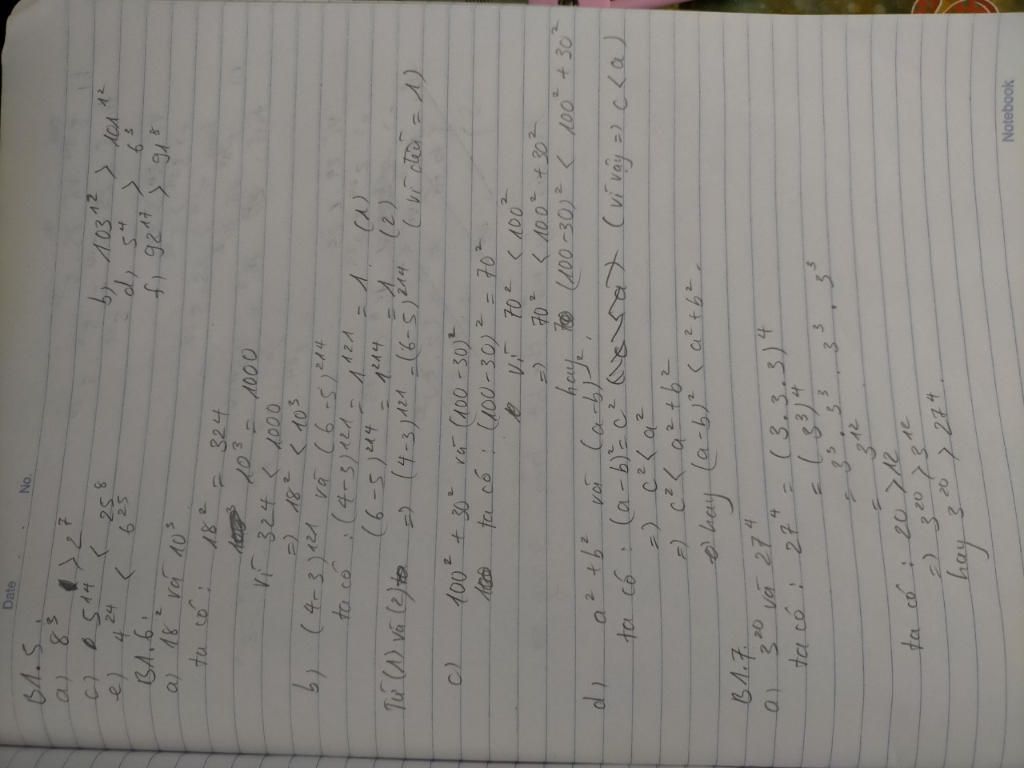 Date No.
B1.5:
a) 8³ > 2⁷ b) 103¹² > 101¹²
c) 5¹⁴ < 25⁸ d) 5⁴ > 6³
e) 4²⁴ < 6²⁵ f) 92¹⁷ > 91⁸
B1.6:
a) 18² và 10³
ta có: 18² = 324
10³ = 1000
Vì 324 < 1000
=> 18² < 10³
b) (4-3)¹²¹ và (6-5)²¹⁴
ta có: (4-3)¹²¹ = 1¹²¹ = 1 (1)
(6-5)²¹⁴ = 1²¹⁴ = 1 (2)
Từ (1) và (2) => (4-3)¹²¹ = (6-5)²¹⁴ (vì đều = 1)
c) 100² + 30² và (100-30)²
ta có: (100-30)² = 70²
vì 70² < 100²
=> 70² < 100² + 30²
hay (100-30)² < 100² + 30²
d) a² + b² và (a-b)².
ta có: (a-b)² = c² (vì vậy => c < a)
=> c² < a²
=> c² < a² + b²
hay (a-b)² < a² + b².
B1.7
a) 3²⁰ và 27⁴
ta có: 27⁴ = (3.3.3)⁴
= (3³)⁴
= 3³.3³.3³.3³
= 3¹²
ta có: 20 > 12
=> 3²⁰ > 3¹²
hay 3²⁰ > 27⁴
Notebook